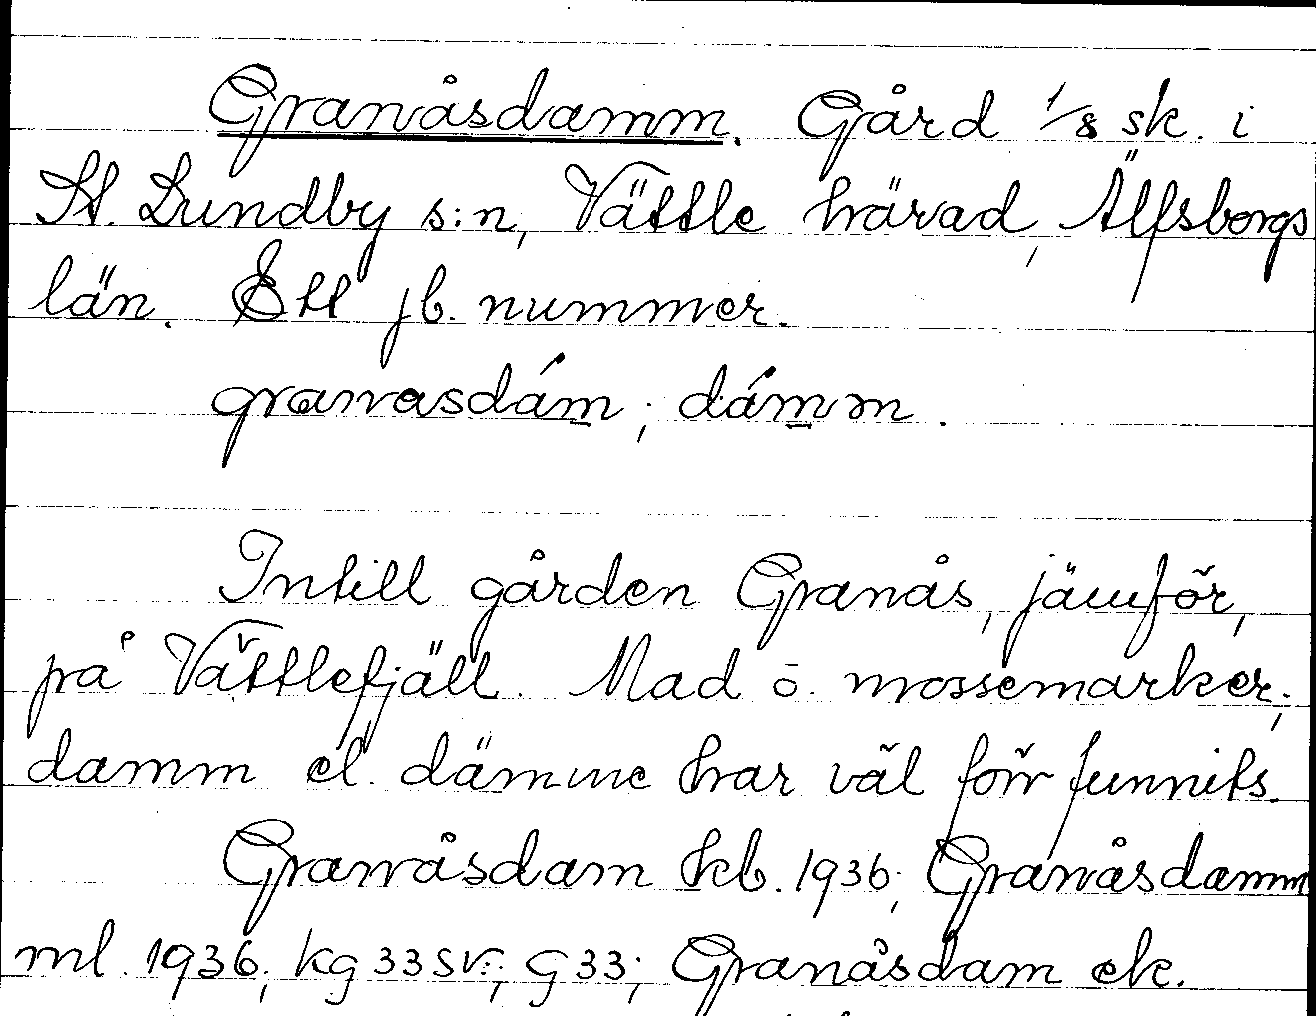 Granåsdamm. Gård 1/8 sk. i
St. Lundby s:n, Vättle härad, Älfsborgs
län. Ett jb. nummer.
granasdám; dámm.
Intill gården Granås, jämför,
på Vättlefjäll. Mad o. mossemarker;
damm el. dämme har väl förr funnits.
Granåsdam kb. 1936; Granåsdamm
ml. 1936; kg 33 SV.; G 33; Granåsdam ek.